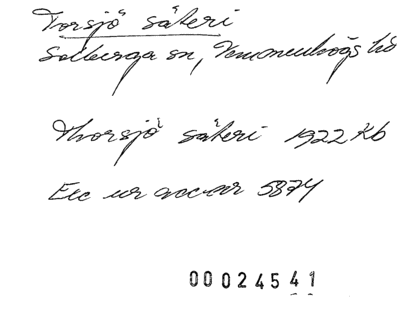 Torsjö säteri
Solberga sn, Vemmenhögs hd
Thorsjö säteri 1922 Kb
Exc ur acc nr 5874
00024541